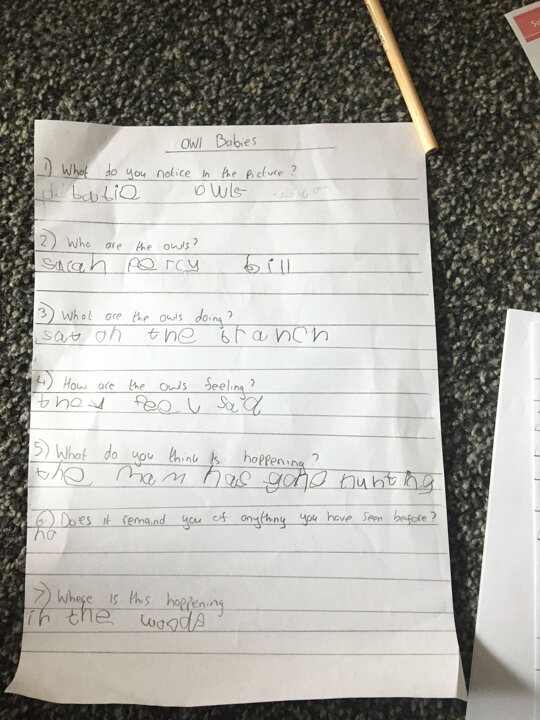 OWl Babies
1) What do you notice in the picture?
owls
2) Who are the owls?
sarah percy bill
3) What are the owls doing?
sat on the branch
4) How are the owls feeling?
they feel sad
5) What do you think is happening?
the mam has gone hunting
6) Does it remaind you of anything you have seen before?
no
7) Where is this happening
in the woods